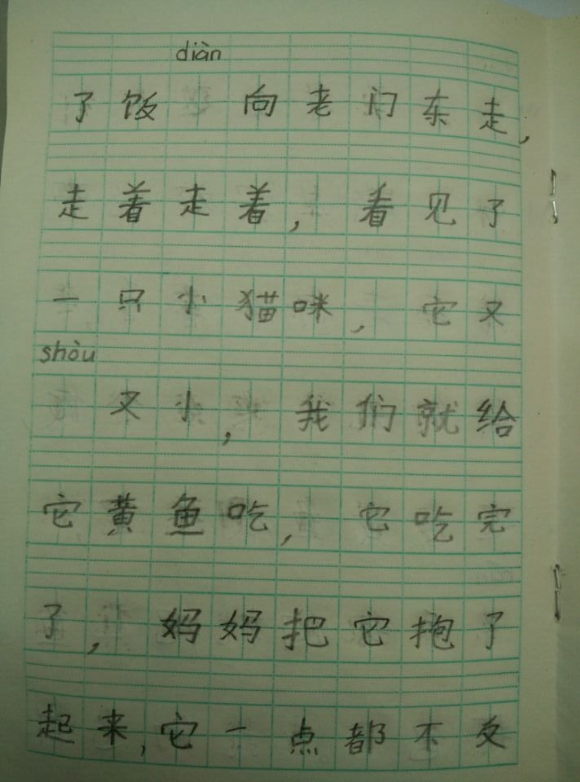 diàn
了饭 向老门东走,
走着走着, 看见了
一只小猫咪, 它又
shòu
又小, 我们就给
它黄鱼吃, 它吃完
了, 妈妈把它抱了
起来,它一点都不反